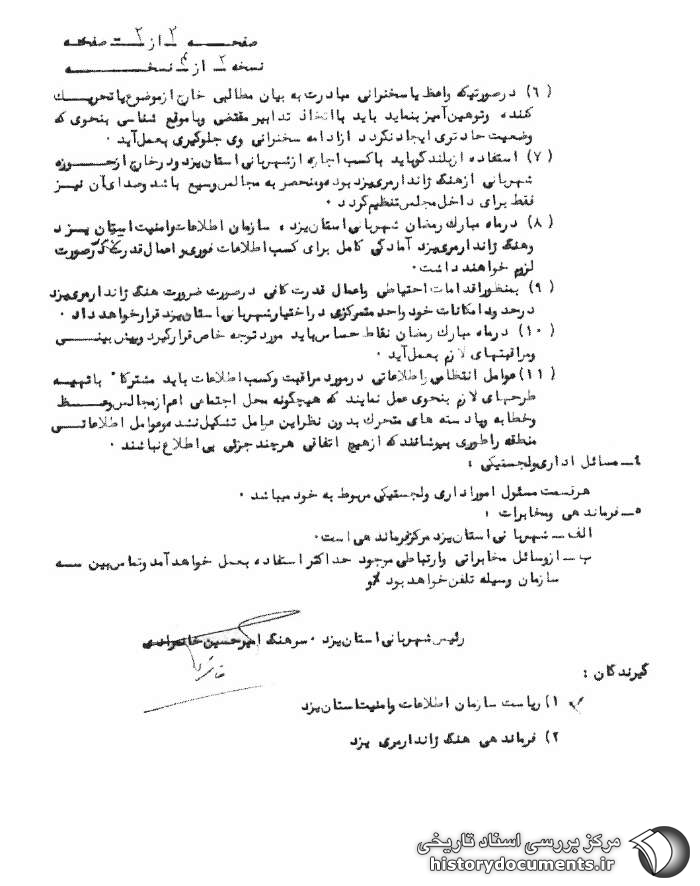 صفحـــه ۳ از ۳ صفحه
نسخه ۲ از ۴ نسخـــه
(۶) درصورتیکه واعظ یا سخنرانی مبادرت به بیان مطالبی خارج ازموضوع یا تحریـــك
کننده وتوهین آمیز بنماید باید با اتخاذ تدابیر مقتضی وبا موقع شناسی بنحوی که
وضعیت حادتری ایجاد نگردد از ادامه سخنرانی وی جلوگیری بعمل آید .
(۷) استفاده ازبلندگو باید باکسب اجازه ازشهربانی استان یزد ودرخارج ازحـــوزه
شهربانی ازهنگ ژاندارمری یزد بوده ومنحصر به مجالس وسیع باشد وصدای آن نیـز
فقط برای داخل مجلس تنظیم گردد .
(۸) درماه مبارك رمضان شهربانی استان یزد ، سازمان اطلاعات وامنیت استان یـــزد
وهنگ ژاندارمری یزد آمادگی کامل برای کسب اطلاعات فوری و اعمال قدرت درصورت
لزوم خواهند داشت .
(۹) بمنظور اقدامات احتیاطی واعمال قدرت کافی درصورت ضرورت هنگ ژاندارمری یزد
درحدود امکانات خود واحد متمرکزی دراختیار شهربانی استان یزد قرار خواهد داد .
(۱۰) درماه مبارك رمضان نقاط حساس باید مورد توجه خاص قرارگیرد وپیش بینــی
ومراقبتهای لازم بعمل آید .
(۱۱) عوامل انتظامی واطلاعاتی درمورد مراقبت وکسب اطلاعات باید مشترکا" باتهیـه
طرحهای لازم بنحوی عمل نمایند که هیچگونه محل اجتماعی اعم ازمجالس وعـــظ
وخطابه ویا دسته های متحرك بدون نظر این عوامل تشکیل نشده وعوامل اطلاعاتـــی
منطقه راطوری بپوشانند که ازهیچ اتفاقی هرچند جزئی بی اطلاع نباشند .
٤ــ مسائل اداری ولجستیکی :
هرقسمت مسئول اموراداری ولجستیکی مربوط به خود میباشد .
٥ــ فرماندهی ومخابرات :
الف ــ شهربانی استان یزد مرکز فرماندهی است .
ب ــ ازوسائل مخابراتی وارتباطی موجود حداکثر استفاده بعمل خواهد آمد وتماس بین ســه
سازمان وسیله تلفن خواهد بود
رئیس شهربانی استان یزد . سرهنگ امیرحسین خانمرادی
گیرندگان :
۱) ریاست سازمان اطلاعات وامنیت استان یزد
۲) فرماندهی هنگ ژاندارمری یزد
مرکز بررسی اسناد تاریخی
historydocuments.ir